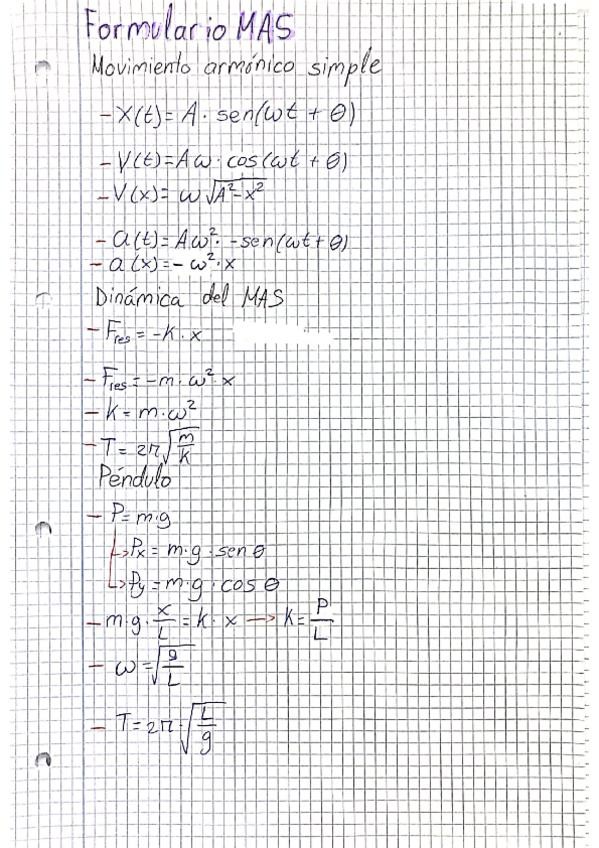 Formulario MAS
Movimiento armónico simple
- X(t)= A · sen(ωt + θ)
- V(t)= Aω · cos(ωt + θ)
- V(x)= ω √(A²-x²)
- a(t)= Aω² · -sen(ωt + θ)
- a(x)= - ω² · x
Dinámica del MAS
- Fres = -K · x
- Fres = -m · ω² · x
- K = m · ω²
- T = 2π √(m/K)
Péndulo
- P = m·g
↳ Px = m·g · sen θ
↳ Py = m·g · cos θ
- m·g · x/L = K · x → K = P/L
- ω = √(g/L)
- T = 2π √(L/g)